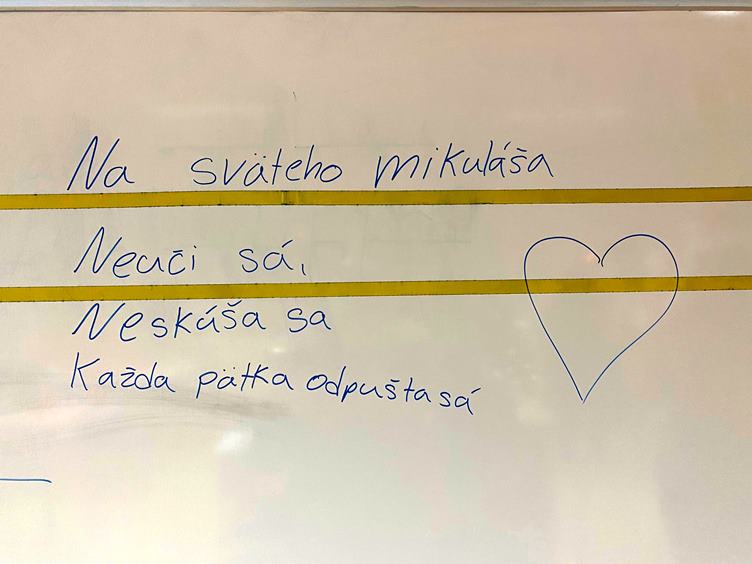 Na sväteho mikuláša
Neuči sá,
Neskúša sa
Každa pätka odpušta sá